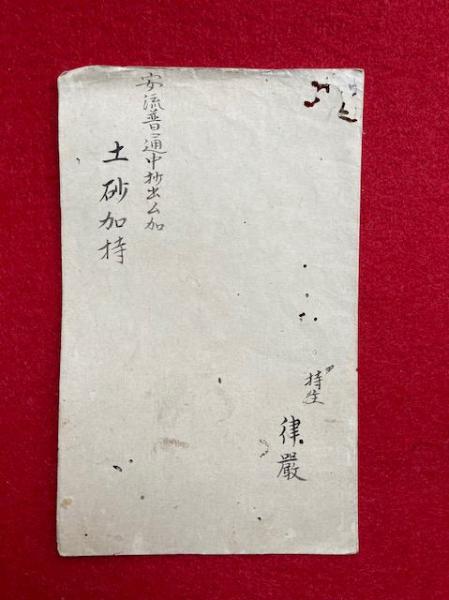 安流普通中抄出ム加
土砂加持
持生
律嚴